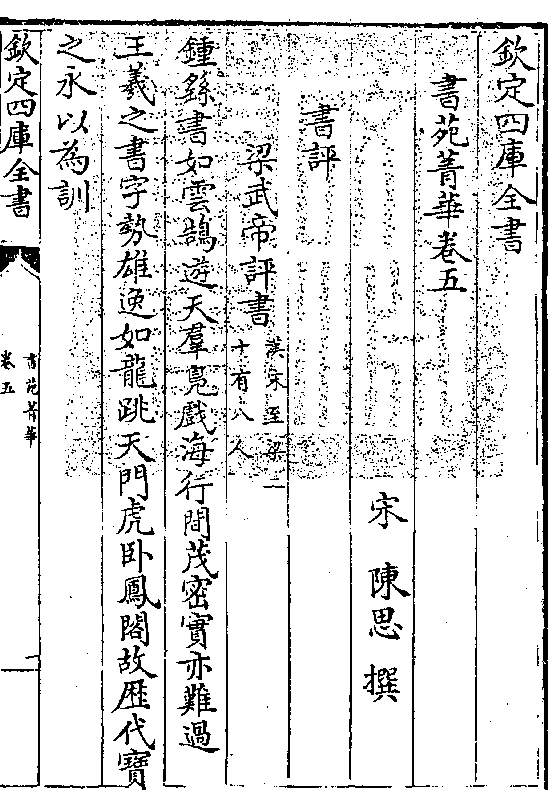 欽定四庫全書
書苑菁華卷五
宋 陳思 撰
書評
梁武帝評書
漢宋至梁二
十有八人
鍾繇書如雲鵠遊天羣鳧戲海行間茂密實亦難過
王羲之書字勢雄逸如龍跳天門虎卧鳳閣故歴代寶
之永以為訓
欽定四庫全書
書苑菁華
卷五
一